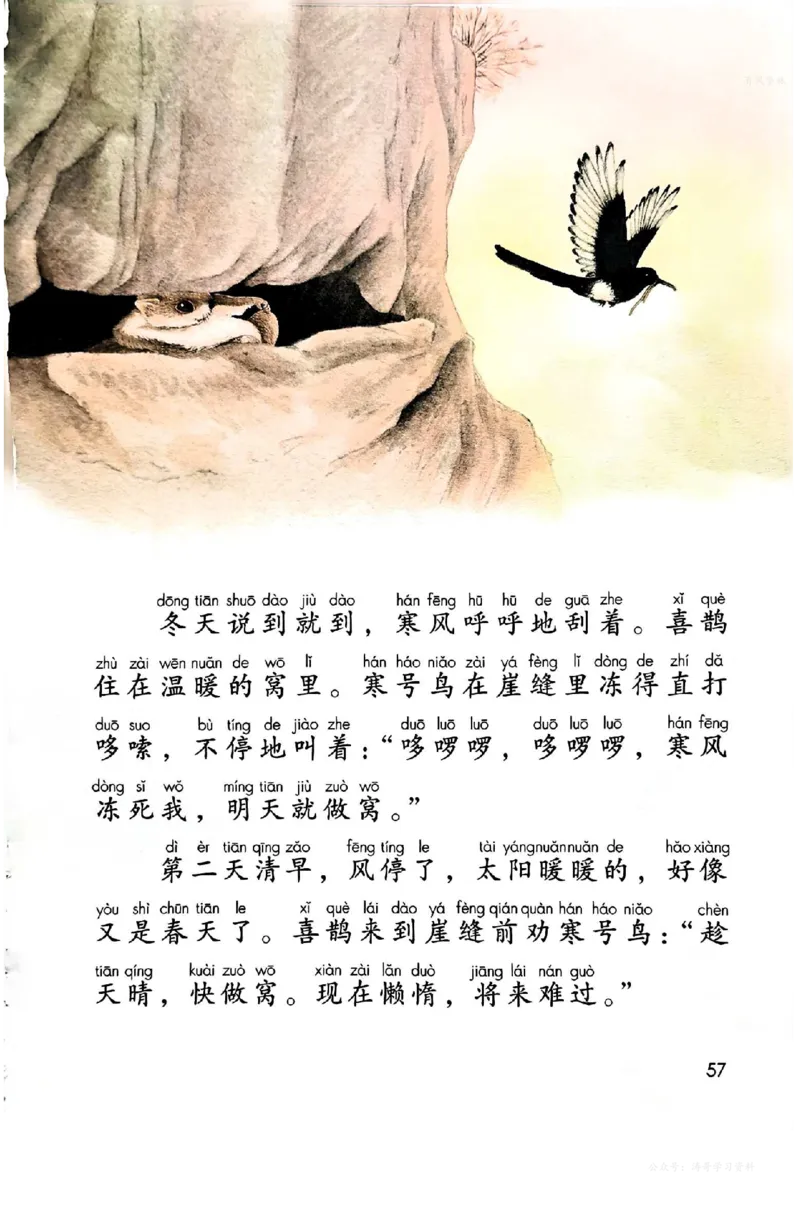 dōng tiān shuō dào jiù dào hán fēng hū hū de guā zhe xǐ què
冬天说到就到，寒风呼呼地刮着。喜鹊
zhù zài wēn nuǎn de wō lǐ hán háo niǎo zài yá fèng lǐ dòng de zhí dǎ
住在温暖的窝里。寒号鸟在崖缝里冻得直打
duō suo bù tíng de jiào zhe duō luō luō duō luō luō hán fēng
哆嗦，不停地叫着：“哆啰啰，哆啰啰，寒风
dòng sǐ wǒ míng tiān jiù zuò wō
冻死我，明天就做窝。”
dì èr tiān qīng zǎo fēng tíng le tài yáng nuǎn nuǎn de hǎo xiàng
第二天清早，风停了，太阳暖暖的，好像
yòu shì chūn tiān le xǐ què lái dào yá fèng qián quàn hán háo niǎo chèn
又是春天了。喜鹊来到崖缝前劝寒号鸟：“趁
tiān qíng kuài zuò wō xiàn zài lǎn duò jiāng lái nán guò
天晴，快做窝。现在懒惰，将来难过。”
57